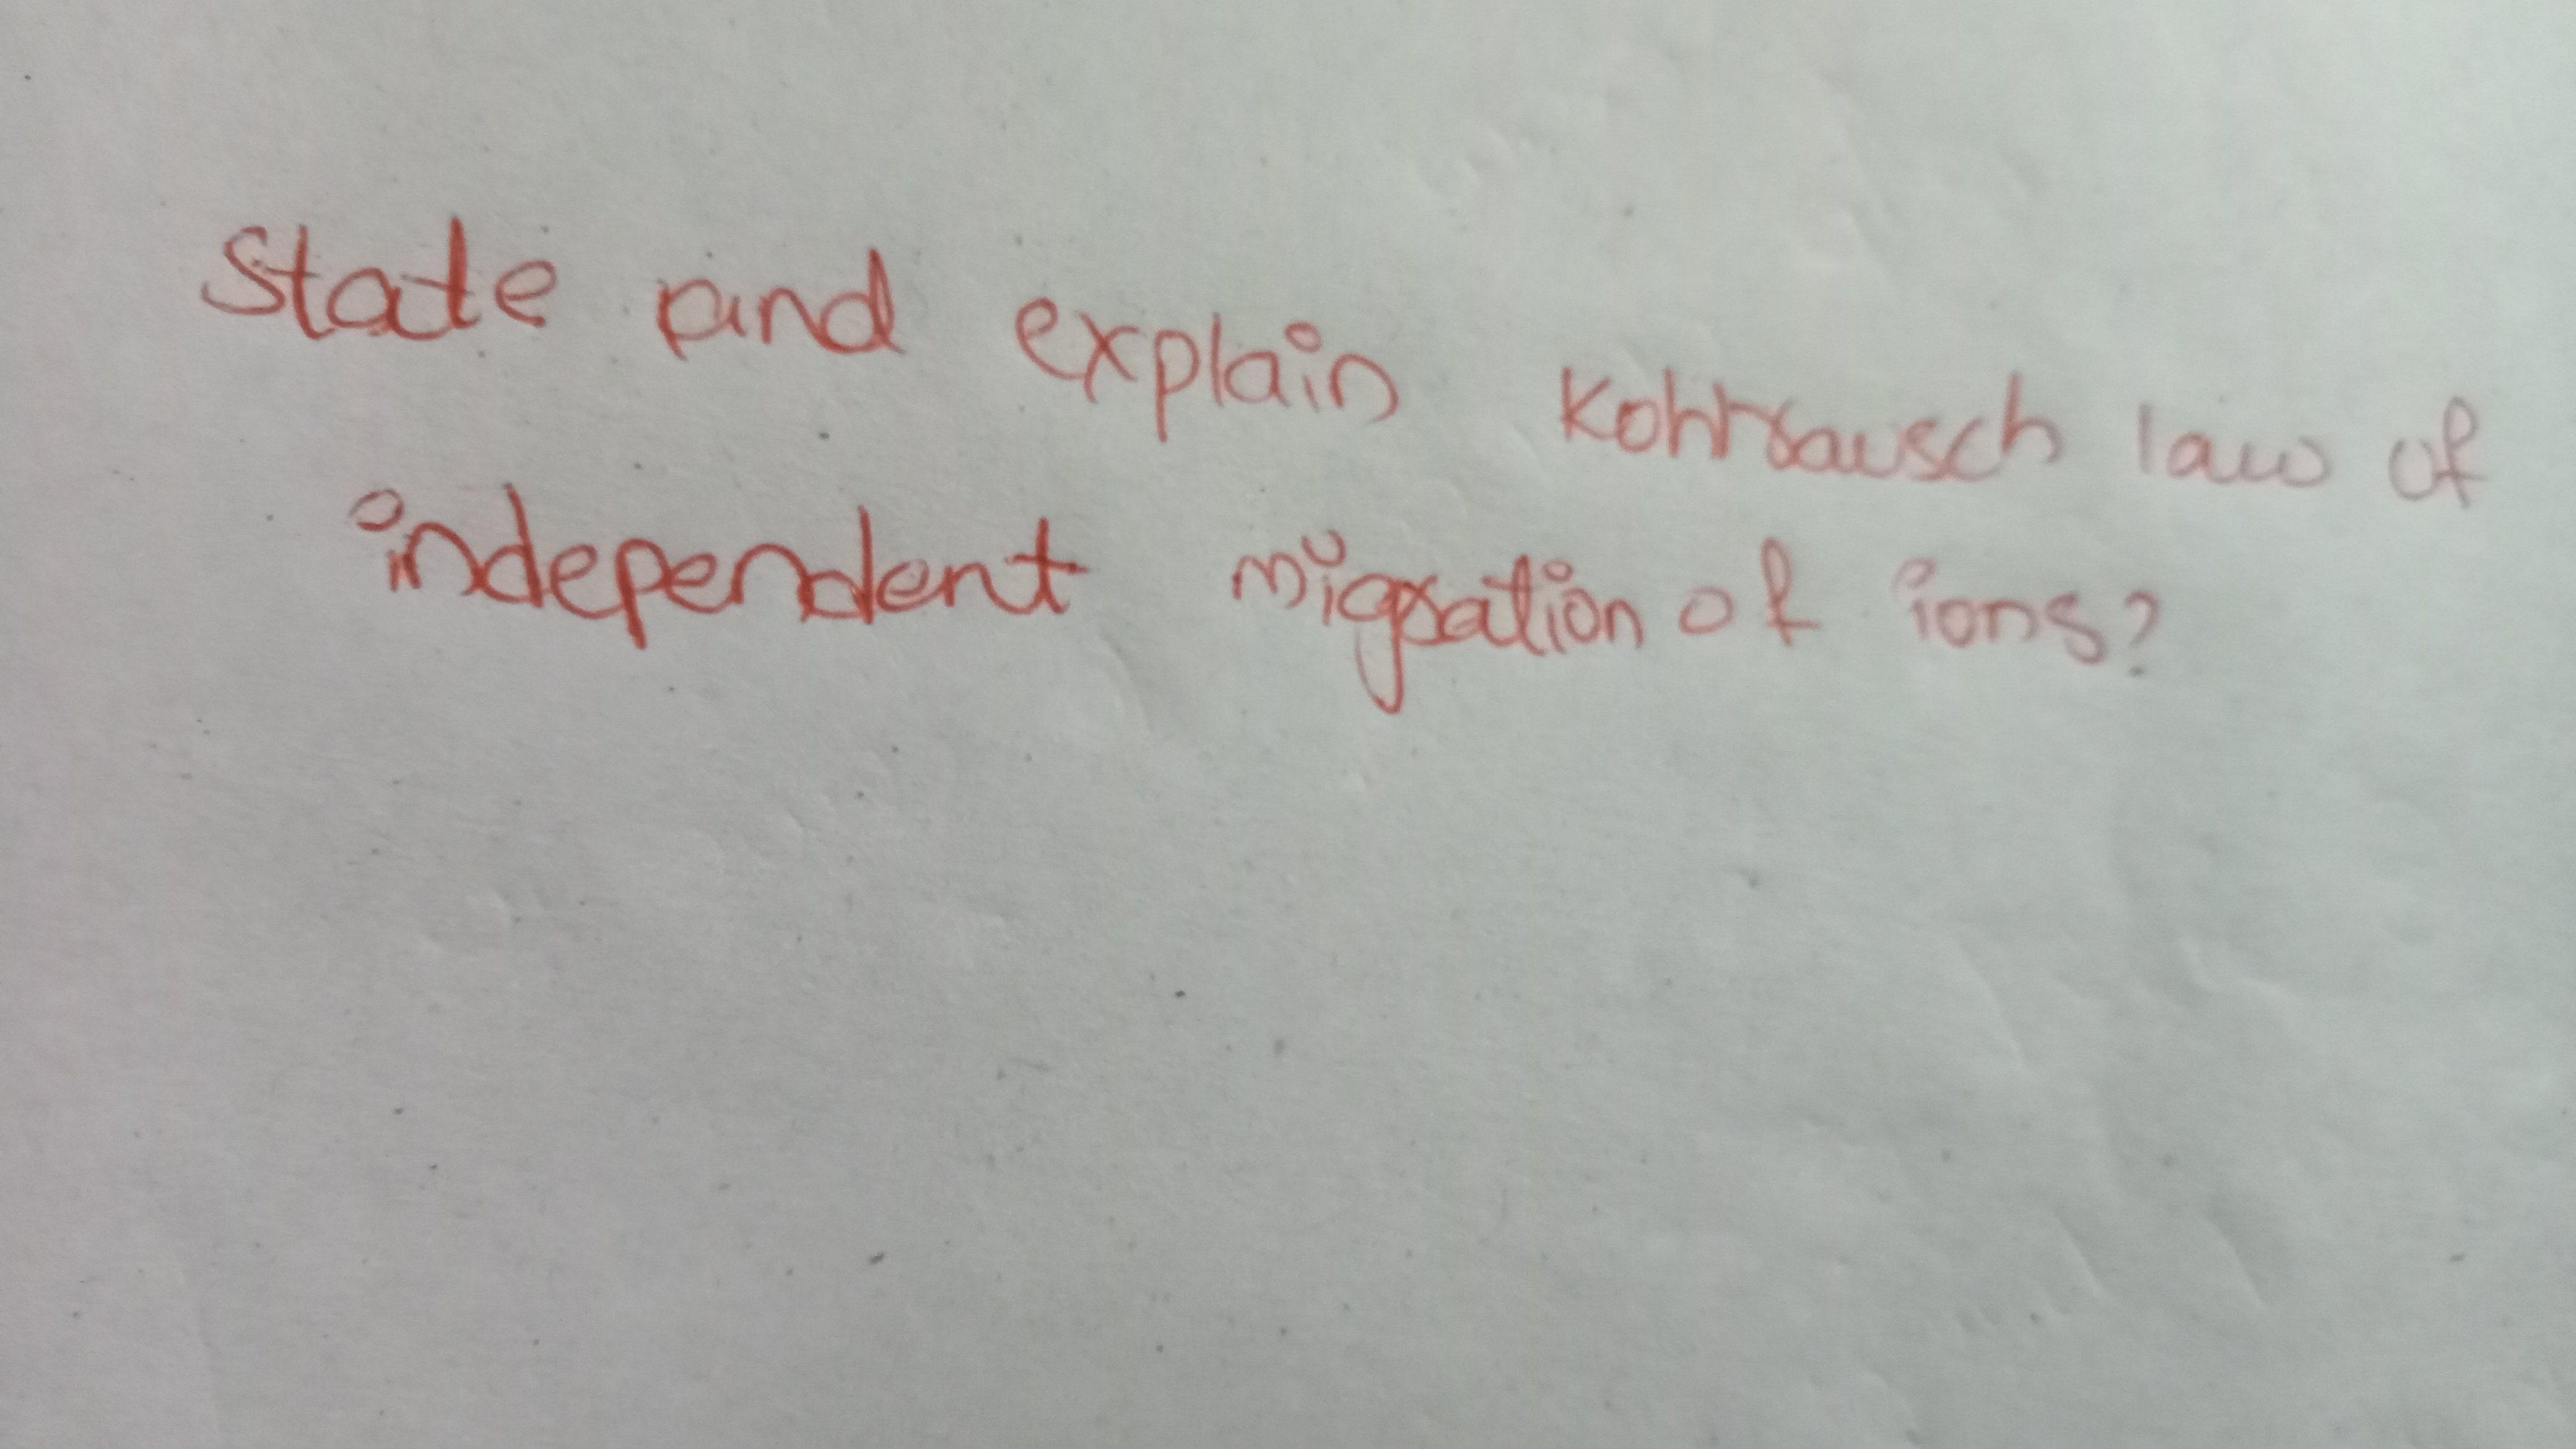 State and explain Kohlrausch law of
independent migration of ions?